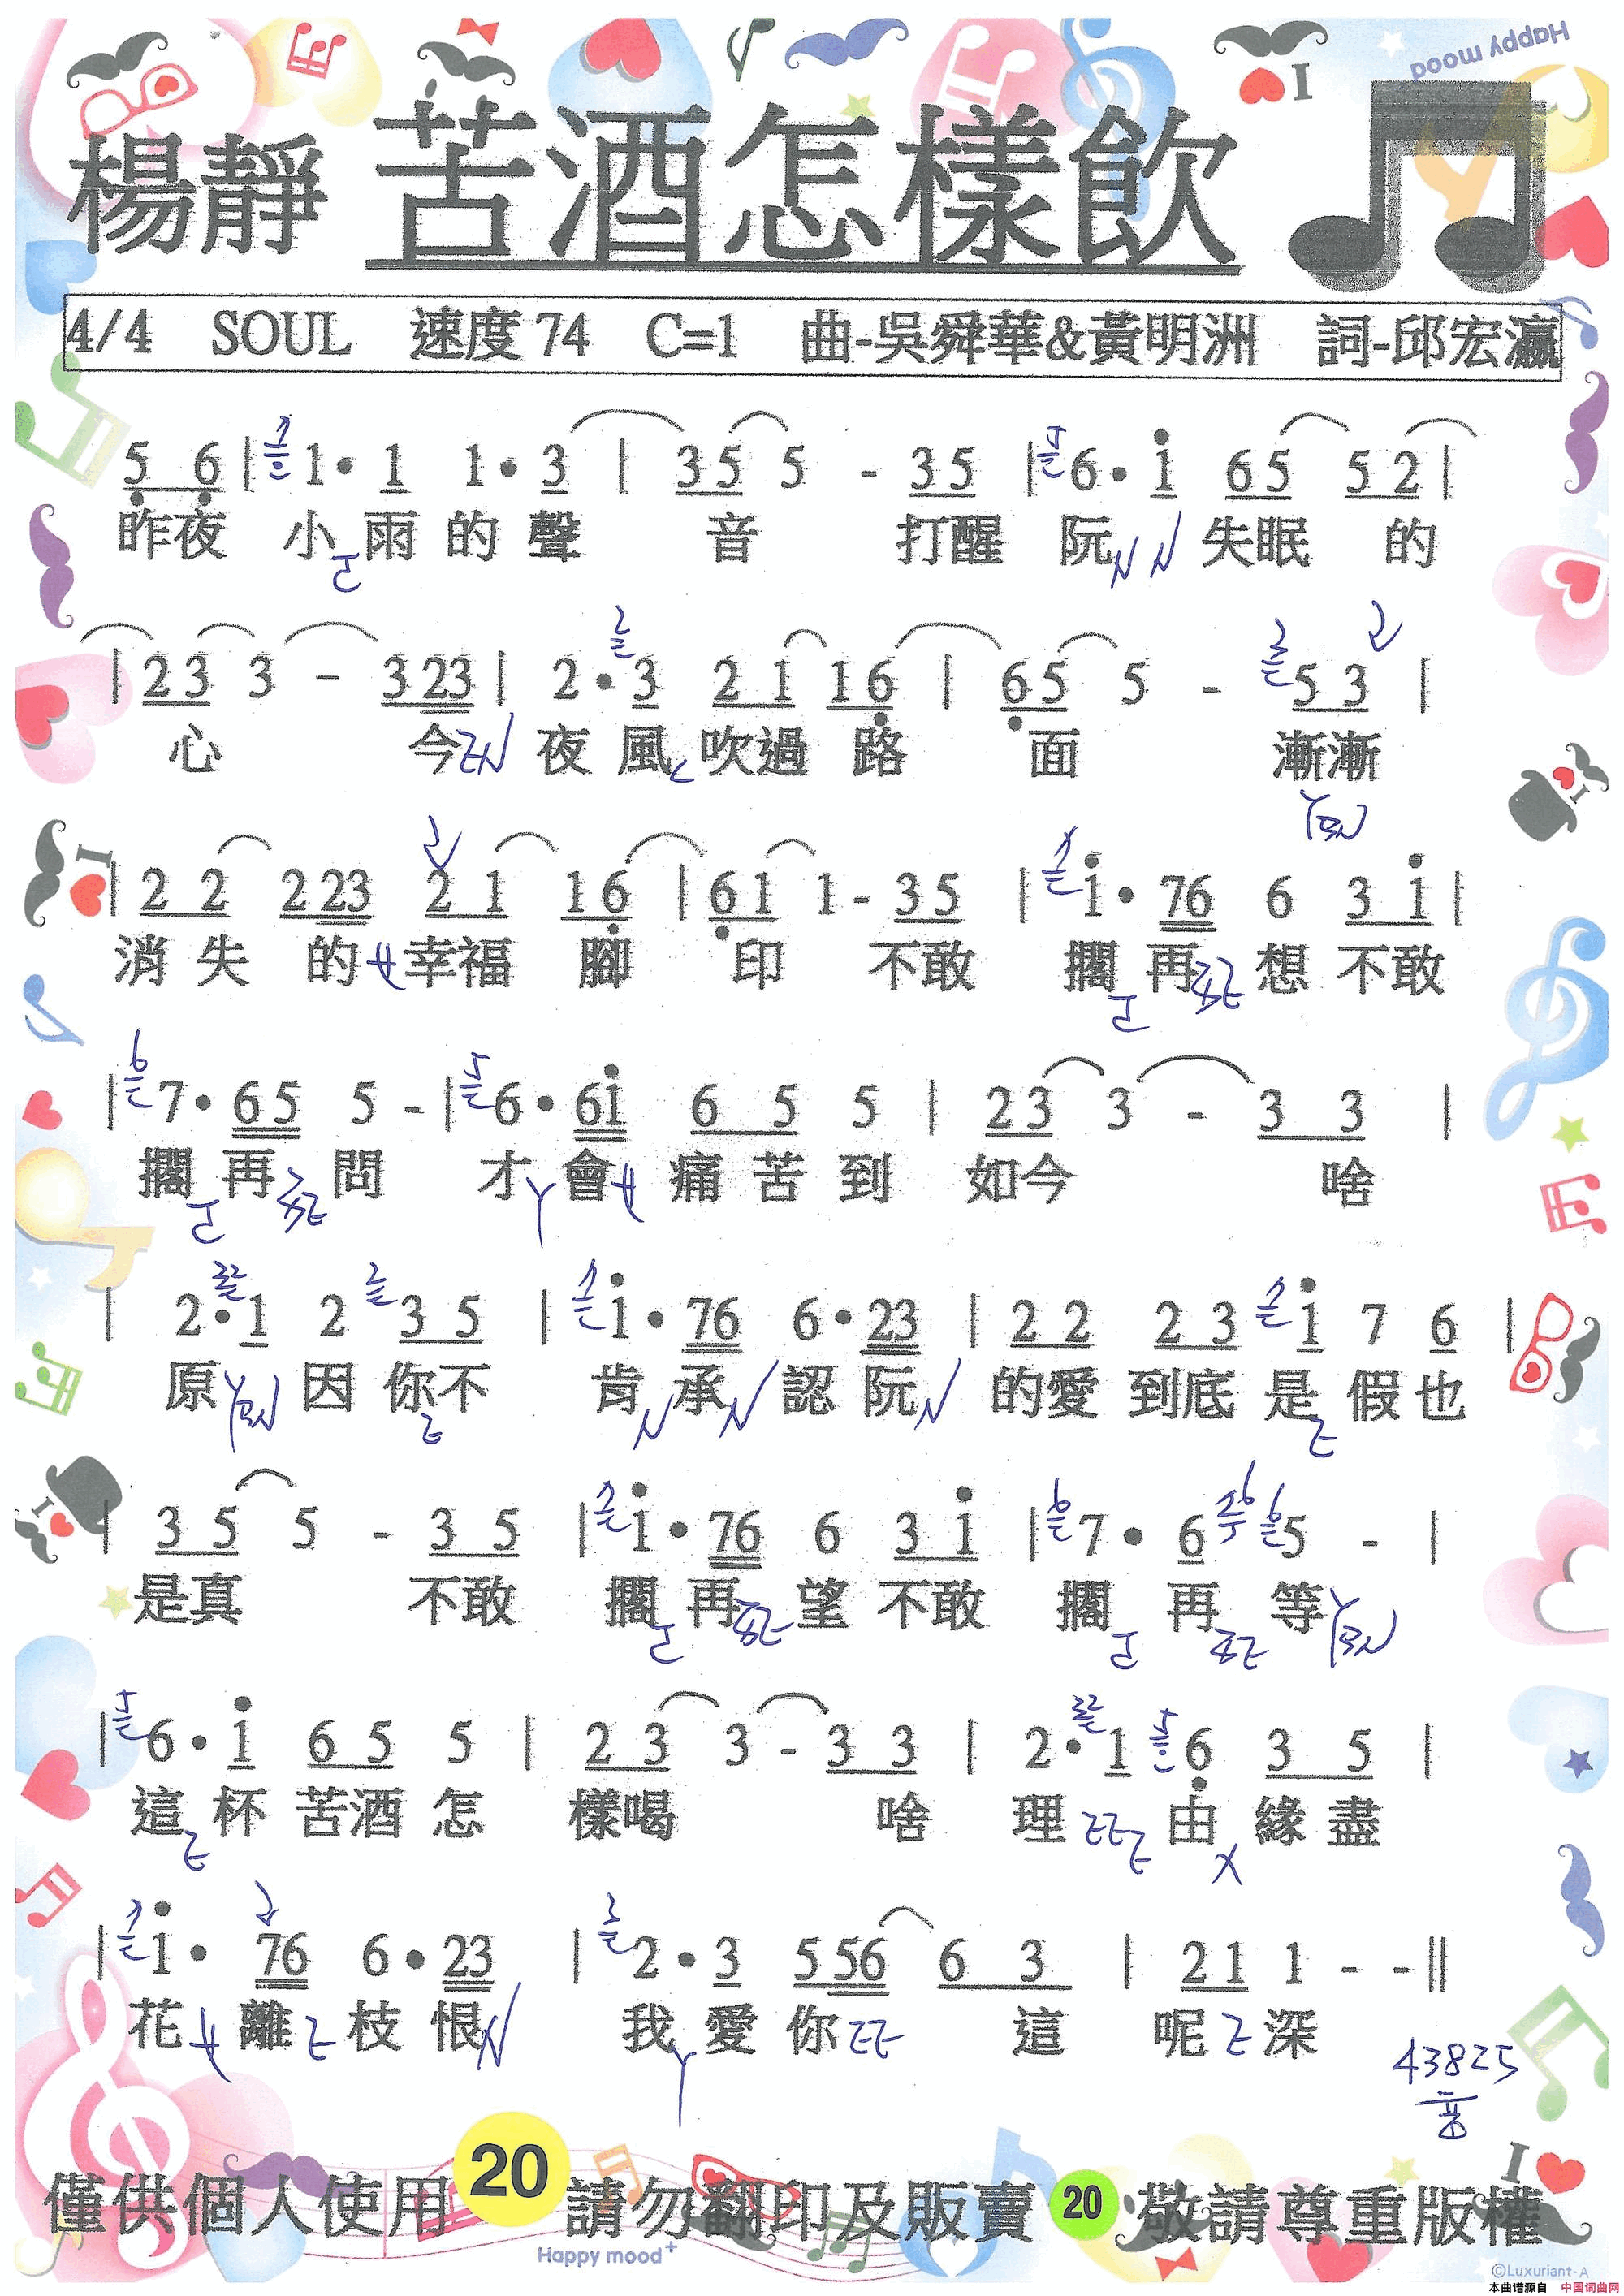 Happy mood
I
楊靜 苦酒怎樣飲
4/4 SOUL 速度 74 C=1 曲-吳舜華&黃明洲 詞-邱宏瀛
5 6 | 1· 1 1· 3 | 3 5 5 - 3 5 | 6· i 6 5 5 2 |
昨夜 小 雨 的 聲 音 打醒 阮 失眠 的
| 2 3 3 - 3 2 3 | 2· 3 2 1 1 6 | 6 5 5 - 5 3 |
心 今 夜 風 吹過 路 面 漸漸
I
| 2 2 2 2 3 2 1 1 6 | 6 1 1 - 3 5 | i· 7 6 6 3 i |
消 失 的 幸福 腳 印 不敢 擱 再 想 不敢
| 7· 6 5 5 - | 6· 6 i 6 5 5 | 2 3 3 - 3 3 |
擱 再 問 才 會 痛 苦 到 如今 啥
| 2· 1 2 3 5 | i· 7 6 6· 2 3 | 2 2 2 3 i 7 6 |
原 因 你不 肯 承 認 阮 的愛 到底 是 假 也
I
| 3 5 5 - 3 5 | i· 7 6 6 3 i | 7· 6 5 - |
是真 不敢 擱 再 望 不敢 擱 再 等
| 6· i 6 5 5 | 2 3 3 - 3 3 | 2· 1 6 3 5 |
這 杯 苦酒 怎 樣喝 啥 理 由 緣 盡
| i· 7 6 6· 2 3 | 2· 3 5 5 6 6 3 | 2 1 1 - - ||
花 離 枝 恨 我 愛 你 這 呢 深
43825
I
僅供個人使用 20 請勿翻印及販賣 20 敬請尊重版權
Happy mood+
©Luxuriant-A
本曲谱源自 中国词曲网